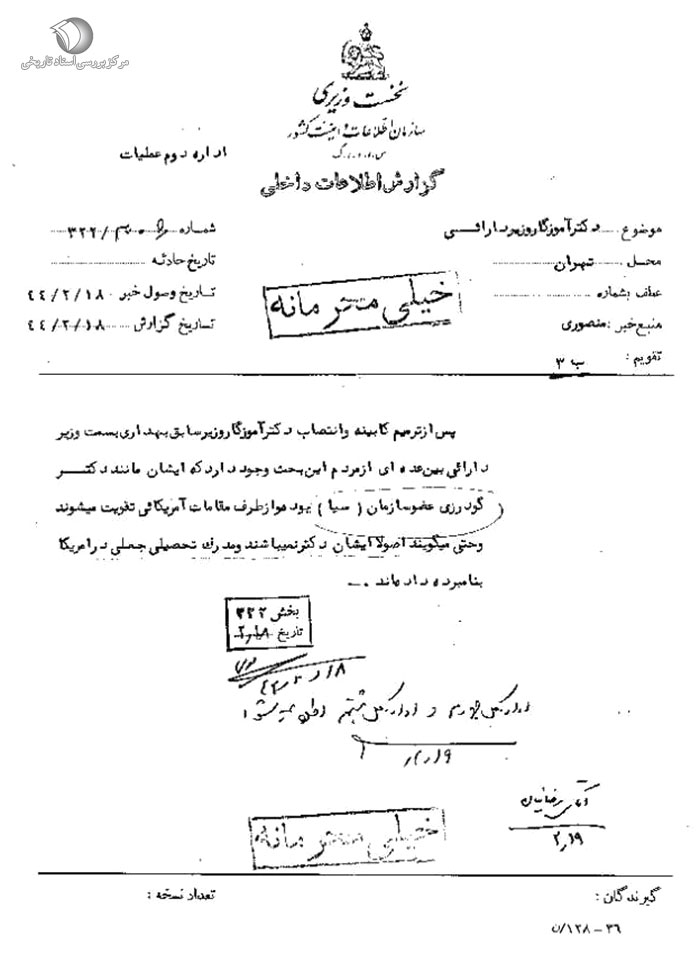 مرکز بررسی اسناد تاریخی
نخست وزیری
سازمان اطلاعات و امنیت کشور
س.ا.و.ا.ک
اداره دوم عملیات
گزارش اطلاعات داخلی
موضوع دکترآموزگاروزیردارائی
شماره /۳۲۲
محل تهران
تاریخ حادثه
عطف بشماره
تاریخ وصول خبر ۴۴/۲/۱۸
منبع خبر : منصوری
تاریخ گزارش ۴۴/۲/۱۸
تقویم : ب ۳
خیلی محرمانه
پس ازترمیم کابینه وانتصاب دکترآموزگاروزیرسابق بهداری بسمت وزیر
دارائی بین عده ای ازمردم این بحث وجود داردکه ایشان مانند دکتر
گودرزی عضوسازمان ( سیا ) بوده وازطرف مقامات آمریکائی تقویت میشوند
وحتی میگویند اصولا ایشان دکترنمیباشند ومدرک تحصیلی جعلی درامریکا
بنامبرده داده‌اند .
بخش ۳۲۲
تاریخ ۲/۱۸
اداره کل چهارم و اداره کل هشتم
۲/۱۹
آقای رضائیان
۲/۱۹
خیلی محرمانه
گیرندگان :
تعداد نسخه :
۳۶ - ۱۲۸/ن